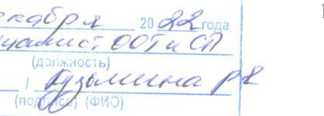 екабря 2022 года
циалист ООТ и СП
(должность)
/ Кузьмина Р К
(подпись) (ФИО)